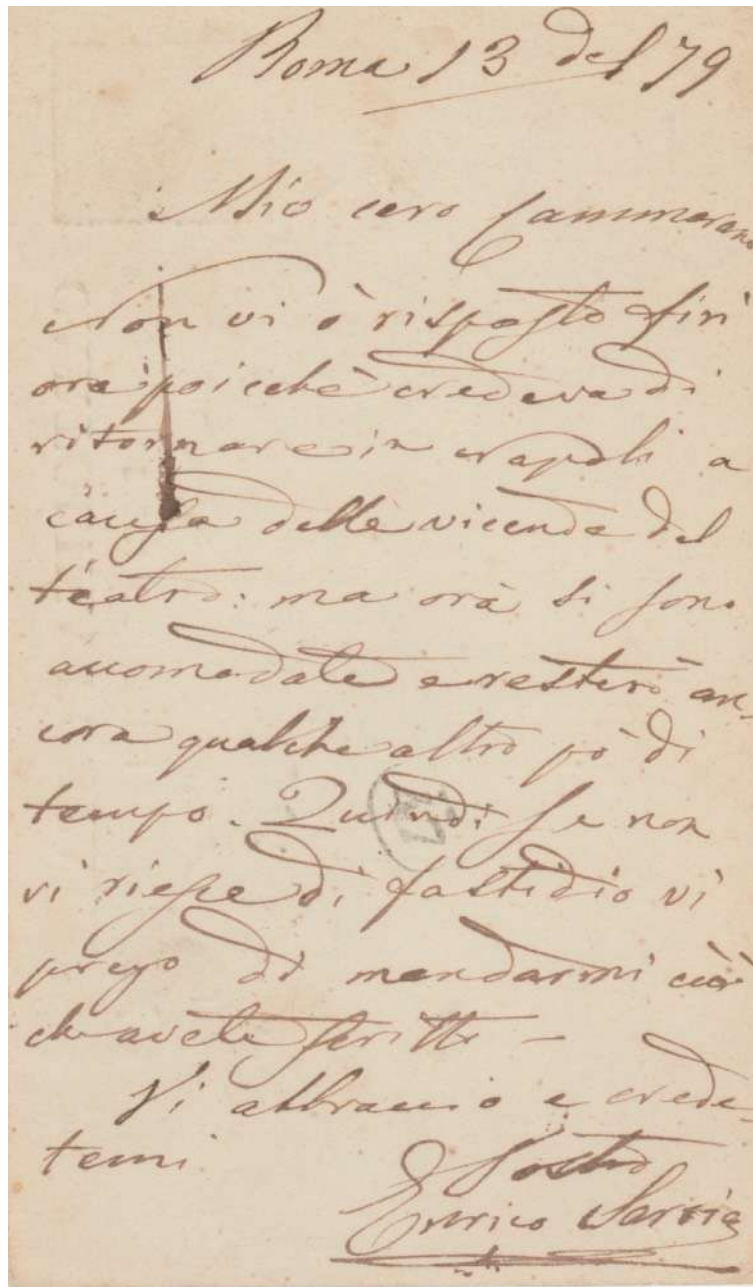 Roma 13 del 79
Mio caro Cammarano
Non vi ò risposto fin
ora poicchè credeva di
ritornare in Napoli a
causa delle vicende del
teatro: ma ora si sono
accomodate e resterò an-
cora qualche altro pò di
tempo. Quindi se non
vi riesce di fastidio vi
prego di mandarmi ciò
che avete scritto -
Vi abbraccio e crede-
temi
Vostro
Enrico